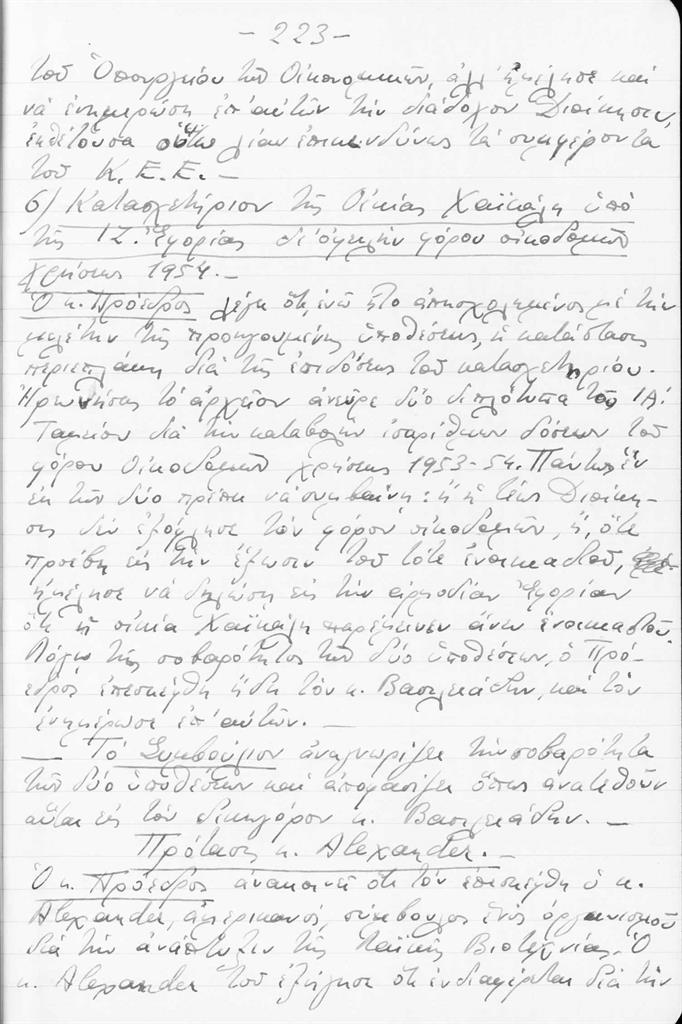 - 223 -
τοῦ Ὑπουργείου τῶν Οἰκονομικῶν, ἀλλ' ἠμέλησε καὶ
νὰ ἐνημερώσῃ ἐπ' αὐτῶν τὴν διάδοχον Διοίκησιν,
ἐκθέτουσα οὕτω λίαν ἐπικινδύνως τὰ συμφέροντα
τοῦ Κ.Ε.Ε. -
6) Κατασχετήριον τῆς Οἰκίας Χαϊκάλη ὑπὸ
τῆς ΙΖ. Ἐφορίας δι' ὀφειλὴν φόρου οἰκοδομῶν
χρήσεως 1954. -
Ὁ κ. Πρόεδρος λέγει ὅτι, ἐνῶ ἦτο ἀπησχολημένος μὲ τὴν
μελέτην τῆς προηγουμένης ὑποθέσεως, ἡ κατάστασις
περιεπλάκη διὰ τῆς ἐπιδόσεως τοῦ κατασχετηρίου.
Ἠρεύνησας τὸ ἀρχεῖον ἀνεῦρε δύο διπλότυπα τοῦ ΙΑ!
Ταμείου διὰ τὴν καταβολὴν ἰσαρίθμων δόσεων τοῦ
φόρου Οἰκοδομῶν χρήσεως 1953-54. Πάντως ἓν
ἐκ τῶν δύο πρέπει νὰ συμβαίνῃ: ἢ ἡ τέως Διοίκη-
σις δὲν ἐξόφλησε τὸν φόρον οἰκοδομῶν, ἤ, ὅτε
προέβη εἰς τὴν ἔξωσιν τοῦ τότε ἐνοικιαστοῦ,
ἠμέλησε νὰ δηλώσῃ εἰς τὴν ἁρμοδίαν Ἐφορίαν
ὅτι ἡ οἰκία Χαϊκάλη παρέμεινεν ἄνευ ἐνοικιαστοῦ.
Λόγῳ τῆς σοβαρότητος τῶν δύο ὑποθέσεων, ὁ Πρό-
εδρος ἐπεσκέφθη ἤδη τὸν κ. Βασιλειάδην, καὶ τὸν
ἐνημέρωσε ἐπ' αὐτῶν. -
— Τὸ Συμβούλιον ἀναγνωρίζει τὴν σοβαρότητα
τῶν δύο ὑποθέσεων καὶ ἀποφασίζει ὅπως ἀνατεθοῦν
αὗται εἰς τὸν δικηγόρον κ. Βασιλειάδην. -
Πρότασις κ. Alexander. -
Ὁ κ. Πρόεδρος ἀνακοινοῖ ὅτι τὸν ἐπεσκέφθη ὁ κ.
Alexander, ἀμερικανός, σύμβουλος ἑνὸς ὀργανισμοῦ
διὰ τὴν ἀνάπτυξιν τῆς λαϊκῆς Βιοτεχνίας. Ὁ
κ. Alexander τοῦ ἐξήγησε ὅτι ἐνδιαφέρεται διὰ τὴν